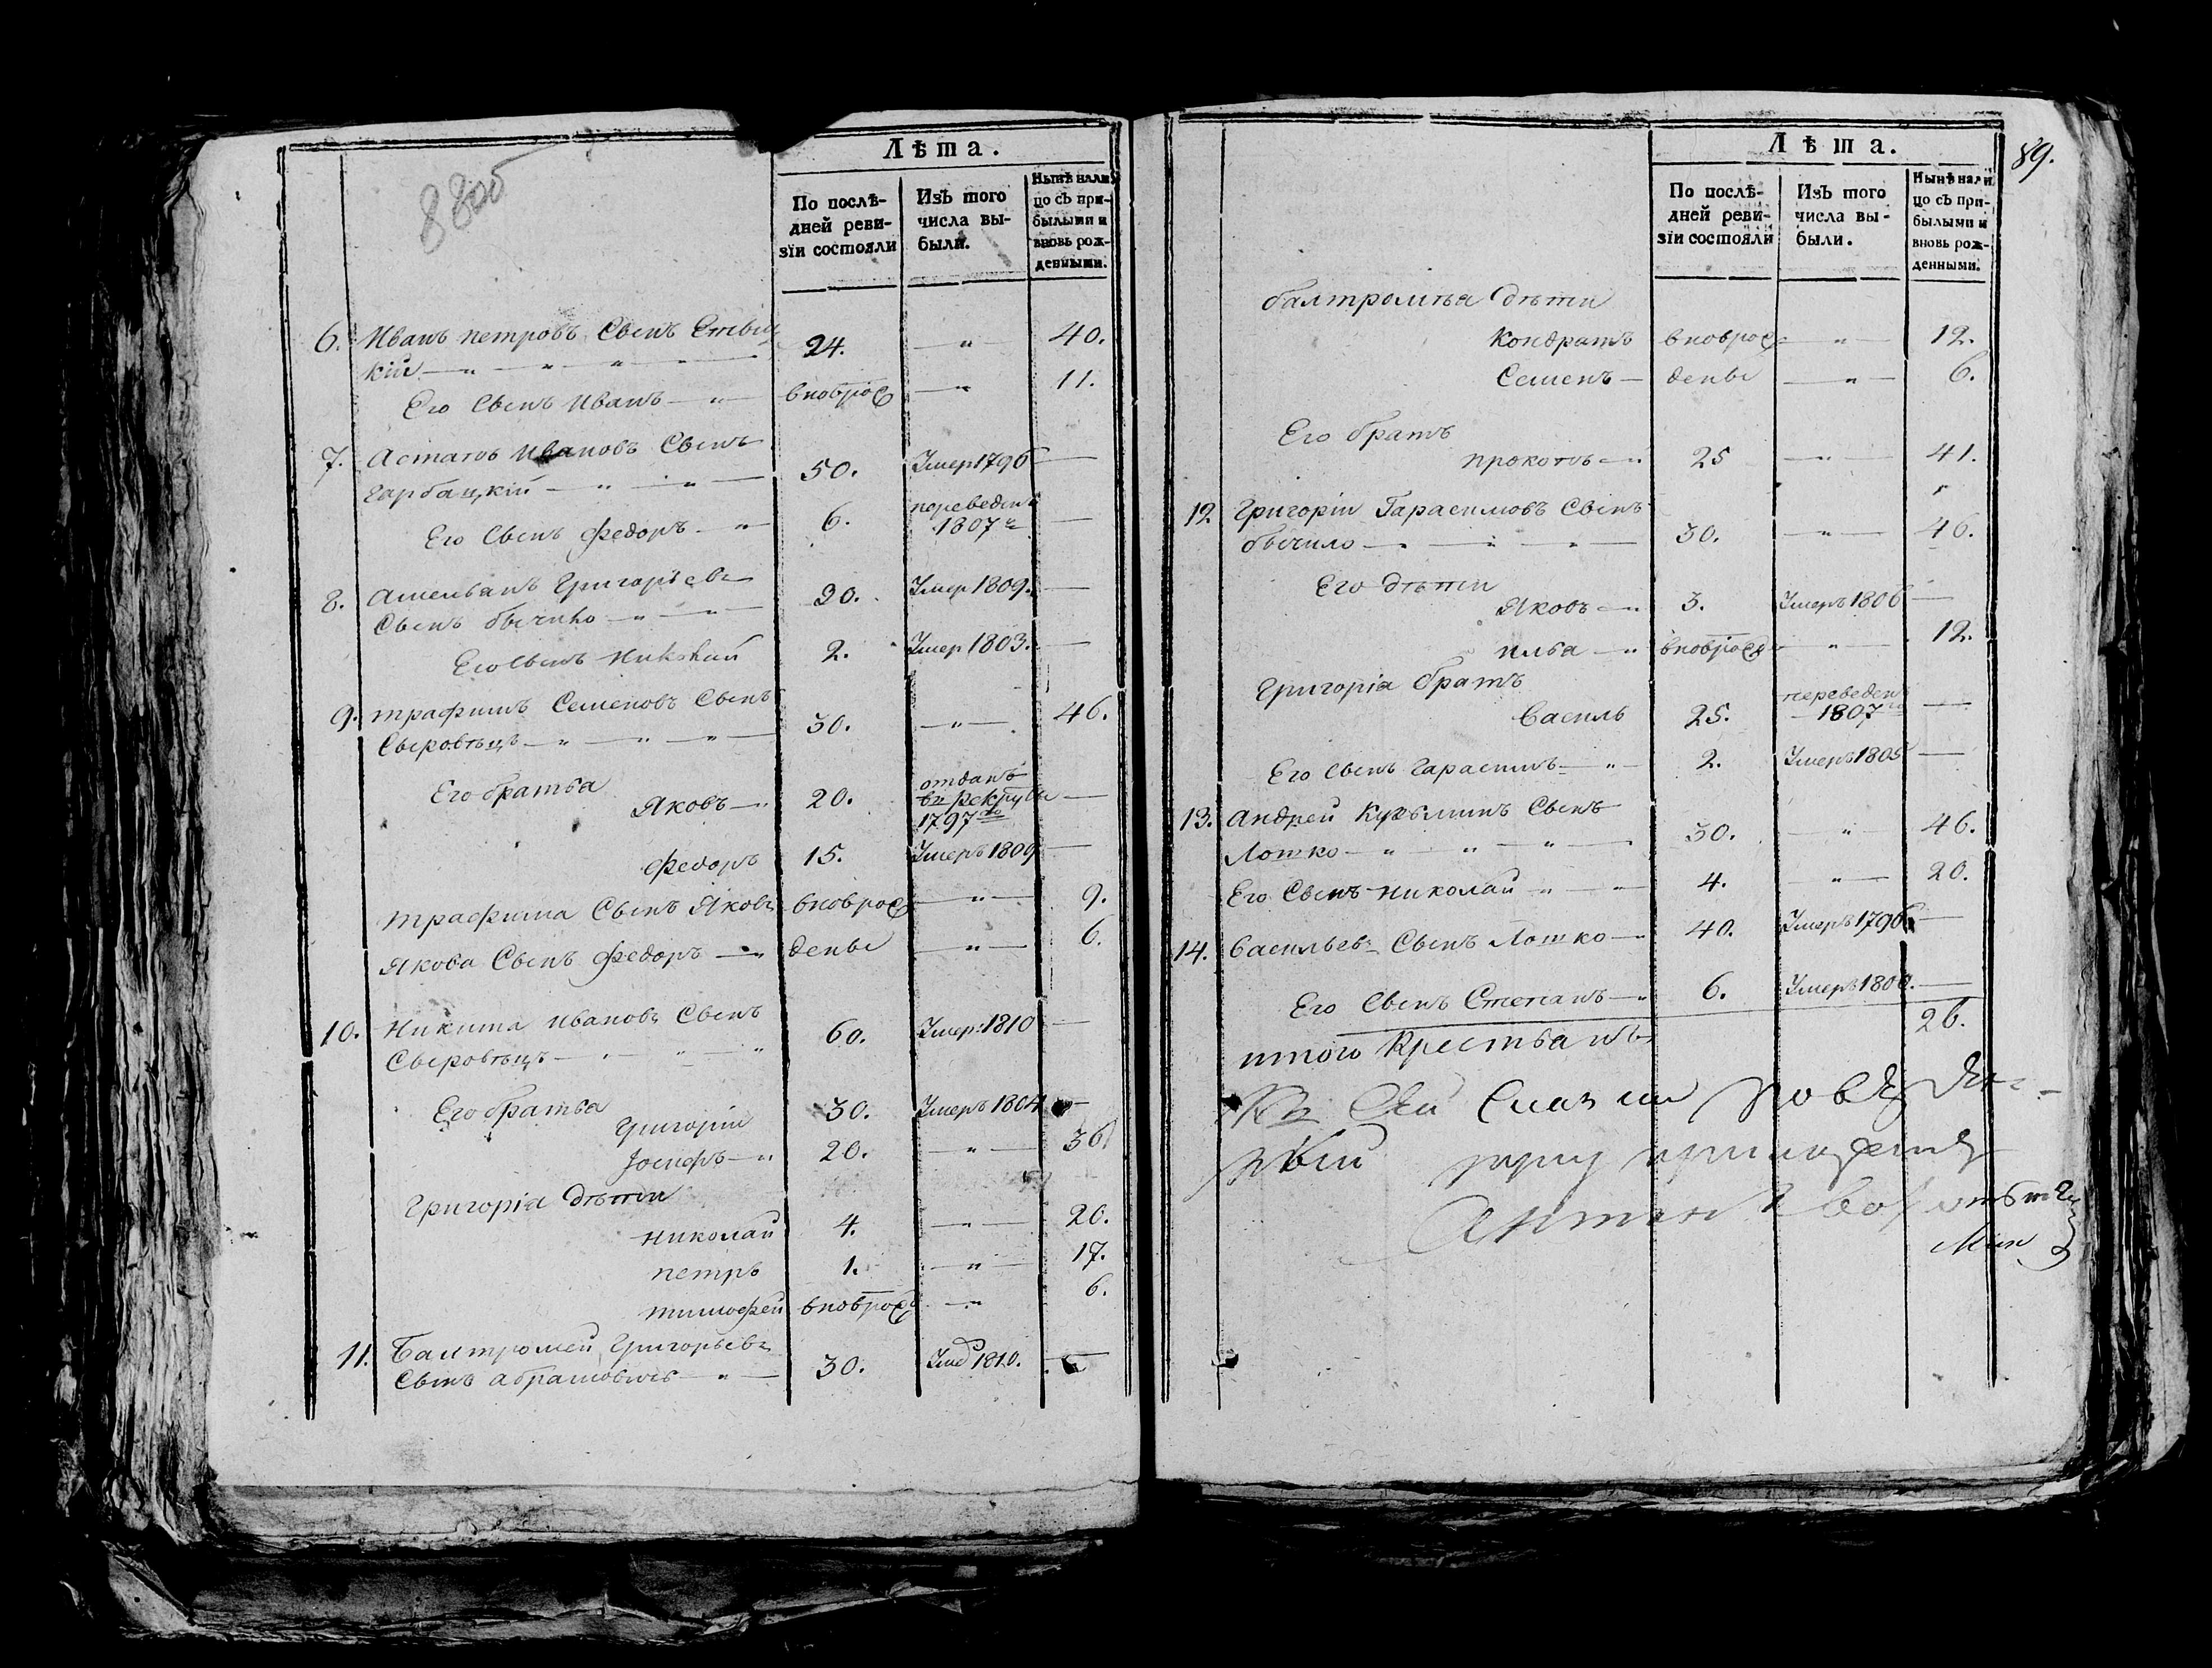 88об
Лѣта.
По послѣ-
дней реви-
зїи состояли
Изъ того
числа вы-
были.
Нынѣ нали
цо съ при-
былыми и
вновь рож-
денными.
6. Иванъ петровъ Сынъ
кій 24. — " — 40.
Его Сынъ Иванъ — " — вноврож — " 11.
7. Астапъ Ивановъ Сынъ
Гарбацкій — " — " — 50. Умер 1796 —
Его Сынъ Федоръ — " 6. переведенъ
1807 —
8. Амельянъ Григорьевъ
Сынъ бычико — " — " — 20. Умер 1809. —
Его Сынъ Николай 2. Умер 1803. —
9. трафимъ Семеновъ Сынъ
Сыровѣцъ — " — " — " — 30. — " — 46.
Его братья
Яковъ — " 20. отданъ
въ рекруты —
1797го
Федоръ 15. Умеръ 1809 —
трафима Сынъ Яковъ вноврож — " — 9.
Якова Сынъ Федоръ — " дены — " — 6.
10. Никита Ивановъ Сынъ
Сыровѣцъ — " — " " 60. Умер: 1810 —
Его братья
Григорій 30. Умеръ 1804 —
Іосифъ — " 20. — " — 36
Григорія дѣти
николай 4. — " — 20.
петръ 1. — " — 17.
тимофей вноврож — " 6.
11. Балтромей Григорьевъ
Сынъ абрамовичъ — " — 30. Умер 1810. —
89.
Лѣта.
По послѣ-
дней реви-
зїи состояли
Изъ того
числа вы-
были.
Нынѣ нали
цо съ при-
былыми и
вновь рож-
денными.
балтромѣя дѣти
Кондратъ вноврож — " — 12.
Семенъ — дены — " — 6.
Его братъ
прокопъ — " 25 — " — 41.
12 Григорій Гарасимовъ Сынъ
бычило — " — " — " — 30. — " — 46.
Его дѣти
Яковъ — " 3. Умеръ 1806 —
илья — " вноврож — " — 12.
Григорія братъ
Василь 25. переведен
1807го —
Его Сынъ Гарасимъ — " — 2. Умеръ 1805 —
13. Андрей Кузьминъ Сынъ
Лотко — " — " — " — 30. — " — 46.
Его Сынъ николай — " — " 4. — " — 20.
14. Васильевъ Сынъ Лотко — " 40. Умеръ 1796 —
Его Сынъ Степанъ — " 6. Умеръ 1800. —
итого Крестьянъ 26.